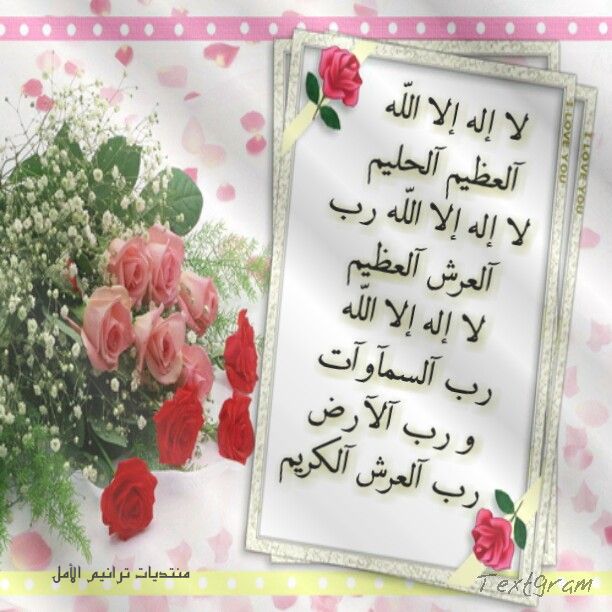 لا إله إلا الله
آلعظيم آلحليم
لا إله إلا الله رب
آلعرش آلعظيم
لا إله إلا الله
رب آلسمآوآت
و رب آلآرض
رب آلعرش آلكريم
I LOVE YOU
I LOVE YOU
منتديات ترانيم الأمل
Textgram